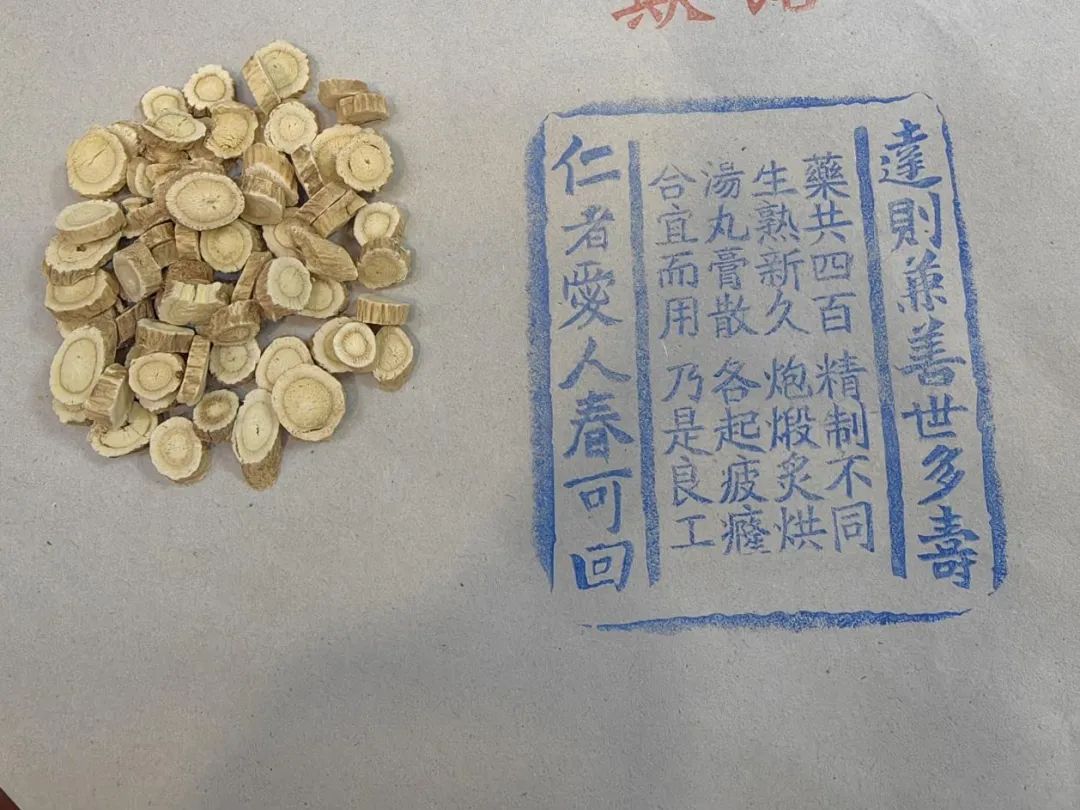 達則兼善世多壽
藥共四百 精制不同
生熟新久 炮煅炙烘
湯丸膏散 各起疲癃
合宜而用 乃是良工
仁者愛人春可回